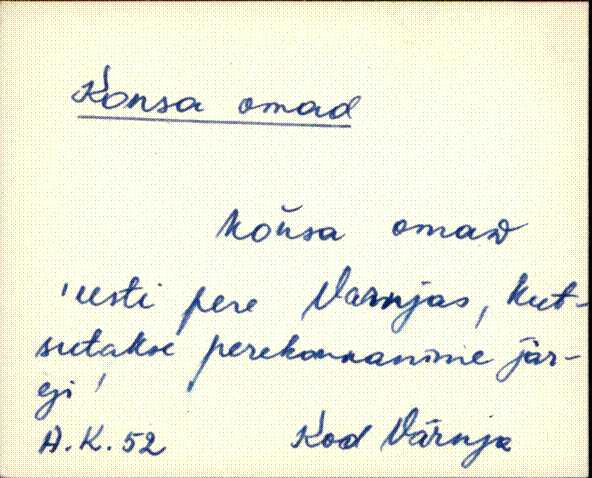 Konsa omad
końsa omaᴅ
'uesti pere Varnjas, kut-
sutakse perekonnanime jär-
gi'
A.K. 52 Kod Varnja